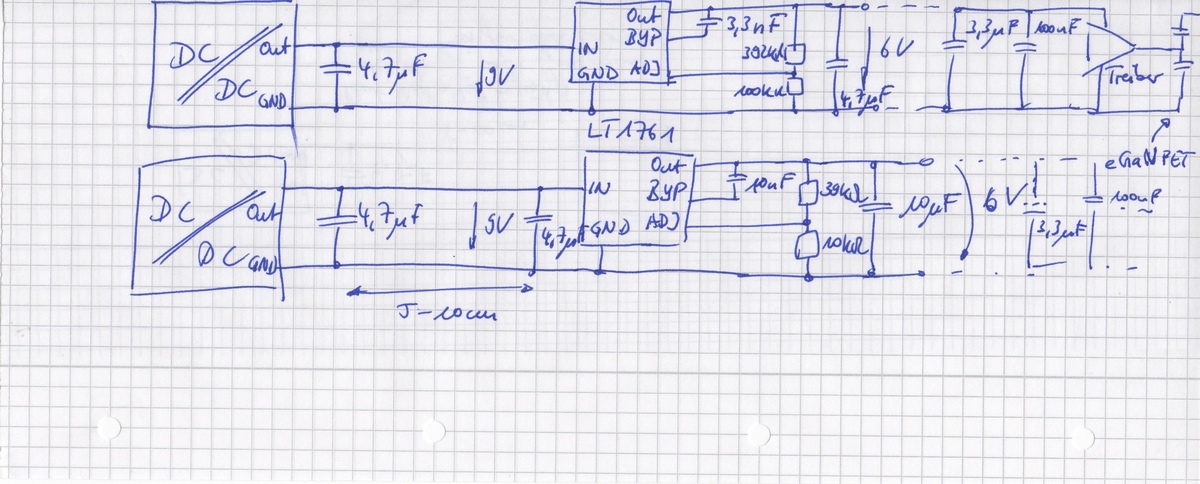 DC
DC
Out
GND
4,7µF
9V
IN
GND
Out
BYP
ADJ
LT1761
3,3nF
392kΩ
100kΩ
4,7µF
6V
3,3µF
100nF
Treiber
eGaN FET
DC
DC
Out
GND
4,7µF
9V
4,7µF
5-10cm
IN
GND
Out
BYP
ADJ
10nF
39kΩ
10kΩ
10µF
6V
3,3µF
100nF